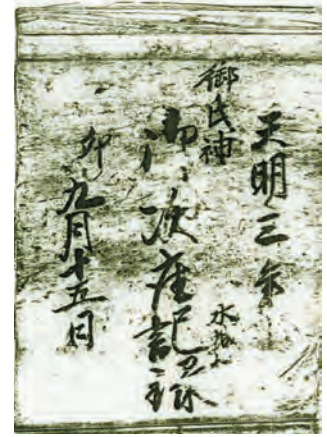 天明三年
御氏神
御次座記録
卯九月十五日